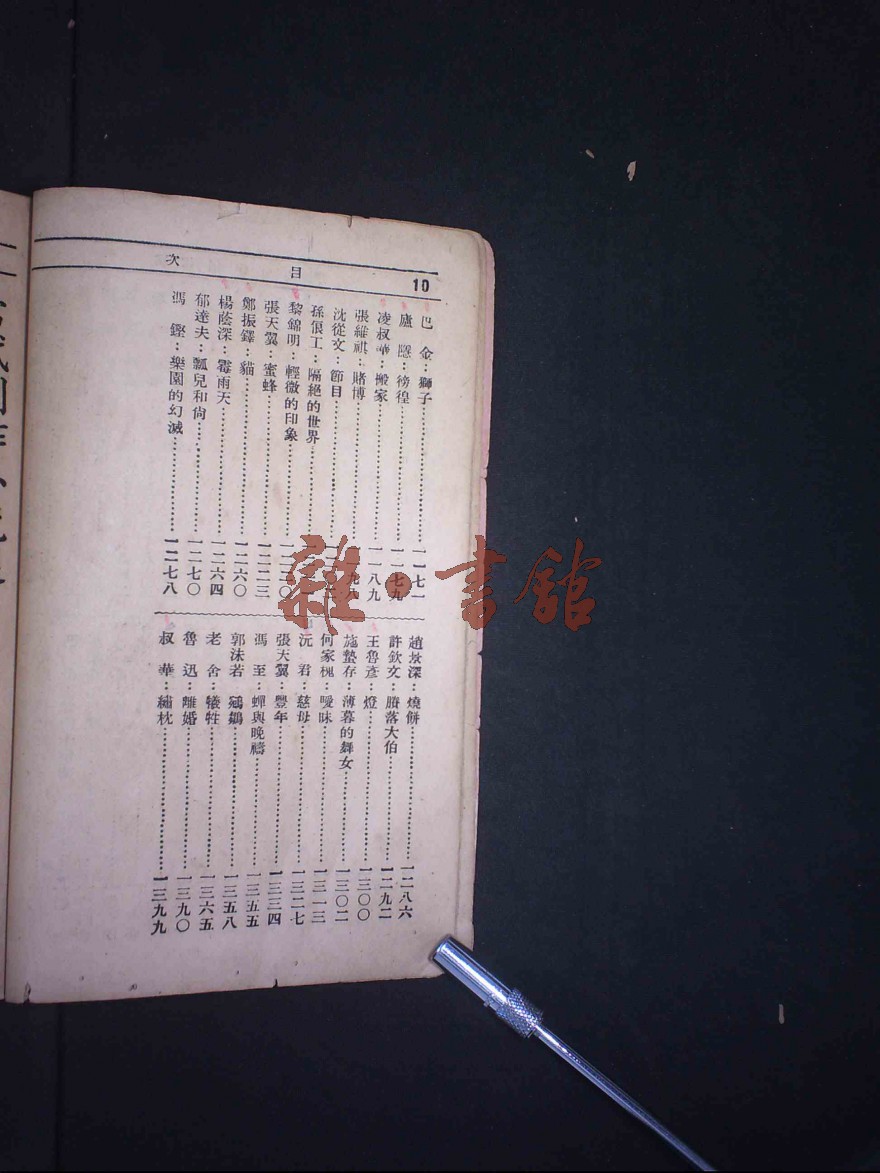 10
目次
巴　金：獅子……一一七一
廬　隱：徬徨……一一七九
凌叔華：搬家……一一八九
張維祺：賭博……
沈從文：節目……
孫俍工：隔絕的世界……
黎錦明：輕微的印象……
張天翼：蜜蜂……一二二三
鄭振鐸：貓……一二六〇
楊蔭深：霉雨天……一二六四
郁達夫：瓢兒和尚……一二七〇
馮　鏗：樂園的幻滅……一二七八
趙景深：燒餅……一二八六
許欽文：賸落大伯……一二九二
王魯彥：燈……一三〇〇
施蟄存：薄暮的舞女……一三〇二
何家槐：曖昧……一三一三
沅　君：慈母……一三二七
張天翼：豐年……一三三四
馮　至：蟬與晚禱……一三五五
郭沫若：鵷鶵……一三五八
老　舍：犧牲……一三六五
魯　迅：離婚……一三九〇
叔　華：繡枕……一三九九
雜·書館